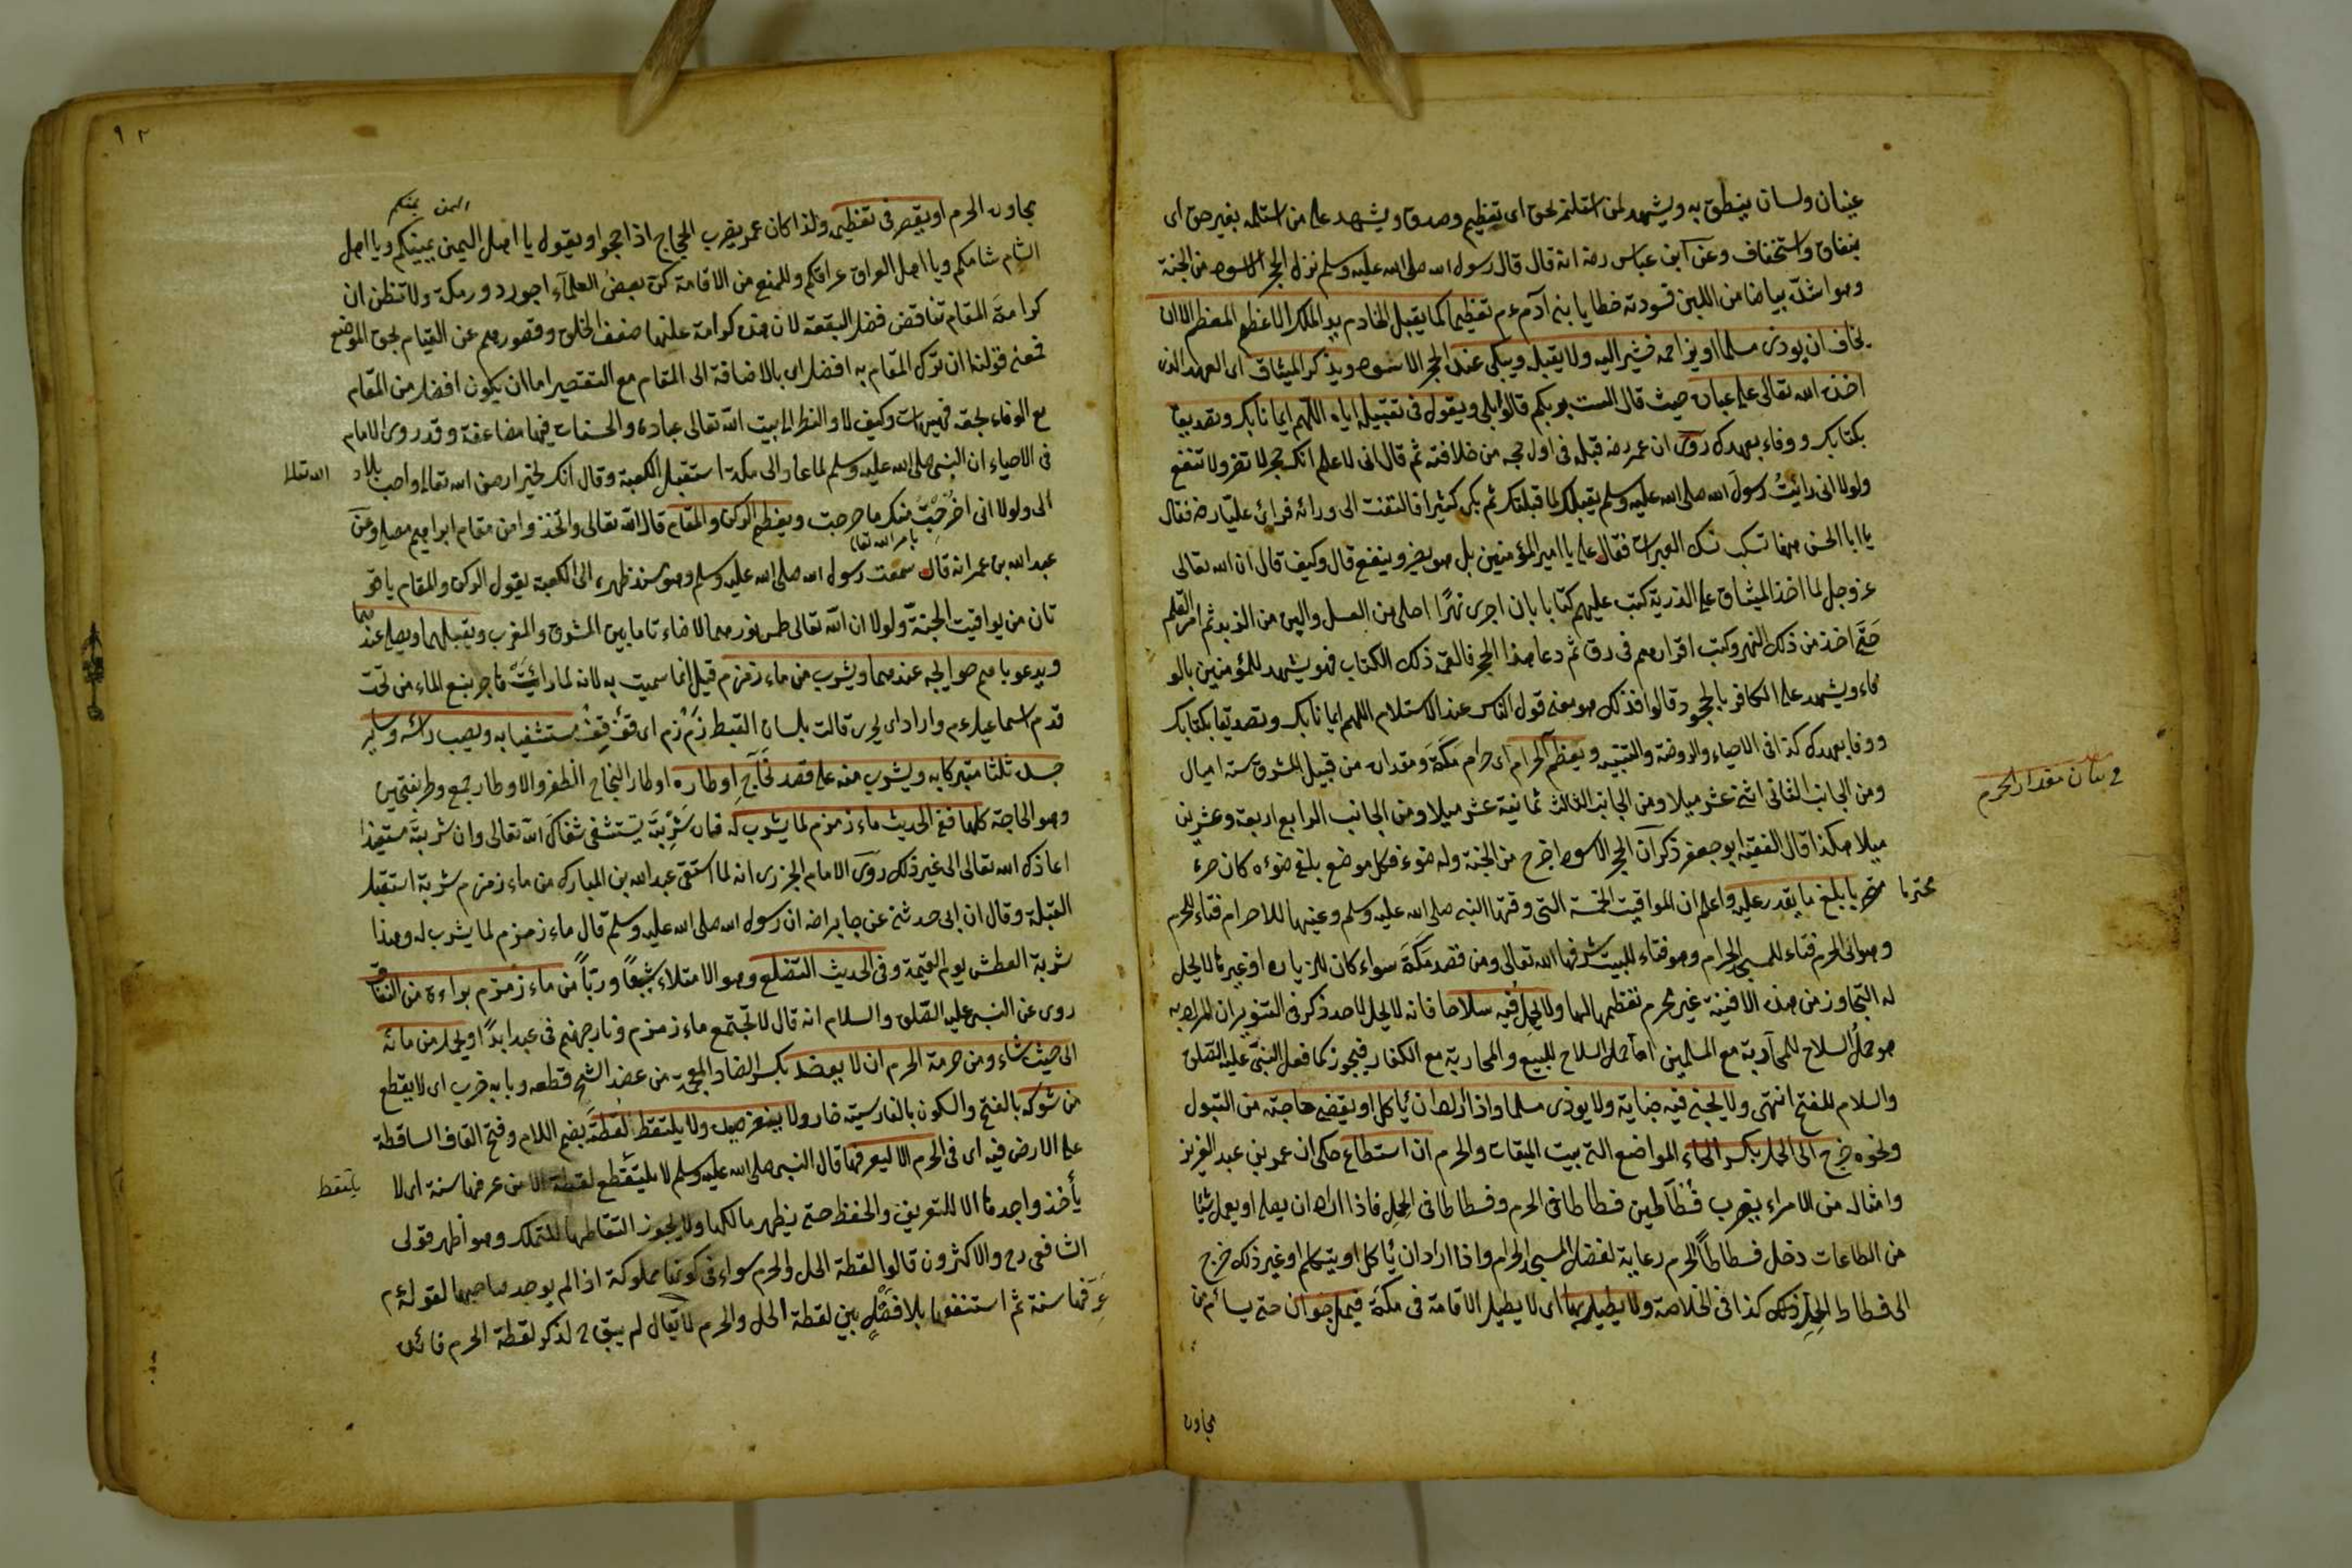 عينان ولسان ينطق به ويشهد لمن استلمه بحق اى تعظيم وصدق ويشهد على من استلمه بغير حق اى
بنفاق واستخفاف وعن ابن عباس رضه انه قال قال رسول الله صلى الله عليه وسلم نزل الحجر الاسود من الجنة
وهو اشد بياضا من اللبن فسودته خطايا بنى آدم ءم تعظيما كما يقبل الخادم يد الملك الاعظم المعظم الا ان
يخاف ان يوذى مسلما او يزاحمه فيشير اليه ولا يقبله ويبكى عند الحجر الاسود ويذكر الميثاق اى العهد الذى
اخذه الله تعالى على عباده حيث قال الست بربكم قالوا بلى ويقول فى تقبيله اياه اللهم ايمانا بك وتصديقا
بكتابك ووفاء بعهدك روى ان عمر رضه قبله فى اول حجه من خلافته ثم قال انى لاعلم انك حجر لا تضر ولا تنفع
ولولا انى رائيت رسول الله صلى الله عليه وسلم يقبلك لما قبلتك ثم بكى كثيرا فالتفت الى ورائه فرائ عليا رضه فقال
يا ابا الحسن ههنا تسكب العبرات فقال على يا امير المؤمنين بل هو يضر وينفع قال وكيف قال ان الله تعالى
عز وجل لما اخذ الميثاق على الذرية كتب عليهم كتابا بان اجرى نهرا احلى من العسل والين من الزبد ثم امر القلم
حتى اخذ من ذلك النهر وكتب اقرارهم فى رق ثم دعا هذا الحجر فالقمه ذلك الكتاب فهو يشهد للمؤمنين بالو
فاء ويشهد على الكافر بالجحود قالوا فذلك هو معنى قول الناس عند الاستلام اللهم ايمانا بك وتصديقا بكتابك
ووفا بعهدك كذا فى الاحياء والروضة والتنبيه ويعظم الحرام اى حرام مكة ومقداره من قبيل المشرق ستة اميال
ومن الجانب الثانى اثنى عشر ميلا ومن الجانب الثالث ثمانية عشر ميلا ومن الجانب الرابع اربعة وعشرين
ميلا هكذا قال الفقيه ابو جعفر ذكر ان الحجر الاسود اخرج من الجنة وله ضوء فكل موضع بلغ ضوءه كان حرم
محترما
يا بلغ ما يقدر عليه واعلم ان المواقيت الخمسة التى وقتها النبى صلى الله عليه وسلم وعينها للاحرام فناء للحرم
وهو اى الحرم فناء للمسجد الحرام وهو فناء للبيت شرفها الله تعالى ومن قصد مكة سواء كان للزياره او غيرها لا يحل
له التجاوز من هذه الافنية غير محرم تعظيما لها ولا يحمل فيه سلاحا فانه لا يحل لاحد ذكر فى التنوير ان المراد به
هو حمل السلاح للمحاربة مع المسلمين اما حمل السلاح للبيع والمحاربة مع الكفار فيجوز كما فعل النبى عليه الصلوة
والسلام للفتح انتهى ولا يجنى فيه جناية ولا يوذى مسلما واذا اراد ان يأكل او يقضى حاجته من التبول
ونحوه خرج الى الحل بكسر الحاء المواضع التى بيت الميقات والحرم ان استطاع حكى ان عمر بن عبد العزيز
وامثاله من الامراء يضرب فسطاطين فسطاطا فى الحرم وفسطاطا فى الحل فاذا اراد ان يصلى او يعمل شيئا
من الطاعات دخل فسطاط الحرم رعاية لفضل المسجد الحرام واذا اراد ان يأكل او يتكلم او غير ذلك خرج
الى فسطاط الحل ذلك كذا فى الخلاصة ولا يطيل بها اى لا يطيل الاقامة فى مكة فيمل جواره حتى يسائم من
مجاوره
فى بيان مقدار الحرم
٩٢
مجاوره الحرم او يقصر فى تعظيمه ولذا كان عمر يضرب الحجاج اذا حجوا ويقول يا اهل اليمن يمينكم ويا اهل
اليمن يمنكم
الشام شامكم ويا اهل العراق عراقكم وللمنع من الاقامة كره بعض العلماء اجور دور مكة ولا تظن ان
كراهة المقام تناقض فضل البقعة لان هذه كراهة علتها ضعف الخلق وقصورهم عن القيام بحق الموضع
فمعنى قولنا ان ترك المقام به افضل اى بالاضافة الى المقام مع التقصير اما ان يكون افضل من المقام
مع الوفاء بحقه فهيهات وكيف لا والنظر الى بيت الله تعالى عباده والحسنات فيها مضاعفة وقد روى الامام
فى الاحياء ان النبى صلى الله عليه وسلم لما عاد الى مكة استقبل الكعبة وقال انك لخير ارض الله تعالى واحب بلاد
الله تعالى
الى ولولا انى اخرجت منك ما خرجت ويعظم الركن والمقام قال الله تعالى واتخذوا من مقام ابراهيم مصلى وعن
بامر الله تعالى
عبد الله بن عمر انه قال سمعت رسول الله صلى الله عليه وسلم وهو مسند ظهره الى الكعبة يقول الركن والمقام ياقو
تان من يواقيت الجنة ولولا ان الله تعالى طمس نورهما لاضاء تا ما بين المشرق والمغرب ويقبلهما ويصلى عندهما
ويدعو باهم حوايجه عندهما ويشرب من ماء زمزم قيل انما سميت به لانه لما رائيت هاجر ينبع الماء من تحت
قدم اسماعيل ءم واراد اى يجرى قالت بلسان القبط زم زم اى قف قف مستشفيا به ويصب رأسه وساير
جسده ثلثا متبركا به ويشرب منه على قصد نجاح اوطاره اوطار النجاح الظفر والاوطار جمع وطر بفتحين
وهو الحاجة كلها ففى الحديث ماء زمزم لما يشرب له فان شربته يستشفى شفاك الله تعالى وان شربته مستعيذا
اعاذك الله تعالى الى غير ذلك روى الامام الجزرى انه لما استقى عبد الله بن المبارك من ماء زمزم شربة استقبل
القبلة وقال ان ابى حدثنى عن جابر رضه ان رسول الله صلى الله عليه وسلم قال ماء زمزم لما يشرب له وهذا
شربة العطش يوم القيمة وفى الحديث التضلع وهو الامتلاء شبعا وريا من ماء زمزم براءة من النفاق
روى عن النبى عليه الصلوة والسلام انه قال لا تجتمع ماء زمزم ونار جهنم فى عبد ابدا ويحمل من مائه
الى حيث شاء ومن حرمة الحرم ان لا يعضد بكسر الضاد المعجمة من عضد الشجر قطعه وبابه ضرب اى لا يقطع
من شوكه بالفتح والسكون بالفارسية خار ولا ينفر صيده ولا يلتقط لقطته بضم اللام وفتح القاف الساقطة
على الارض فيه اى فى الحرم الا ليعرفها قال النبى صلى الله عليه وسلم لا يلتقطع لقطته الا من عرفها سنة اى لا
يلتقط
يأخذ واجدها الا للتعريف والحفظ حتى يظهر مالكها ولا يجوز التقاطها للتملك وهو اظهر قولى
الشافعى رح والاكثرون قالوا لقطة الحل والحرم سواء فى كونها مملوكة اذا لم يوجد صاحبها لقوله ءم
عرفها سنة ثم استنفقها بلا فصل بين لقطة الحل والحرم لا يقال لم يبق ح لذكر لقطة الحرم فائده